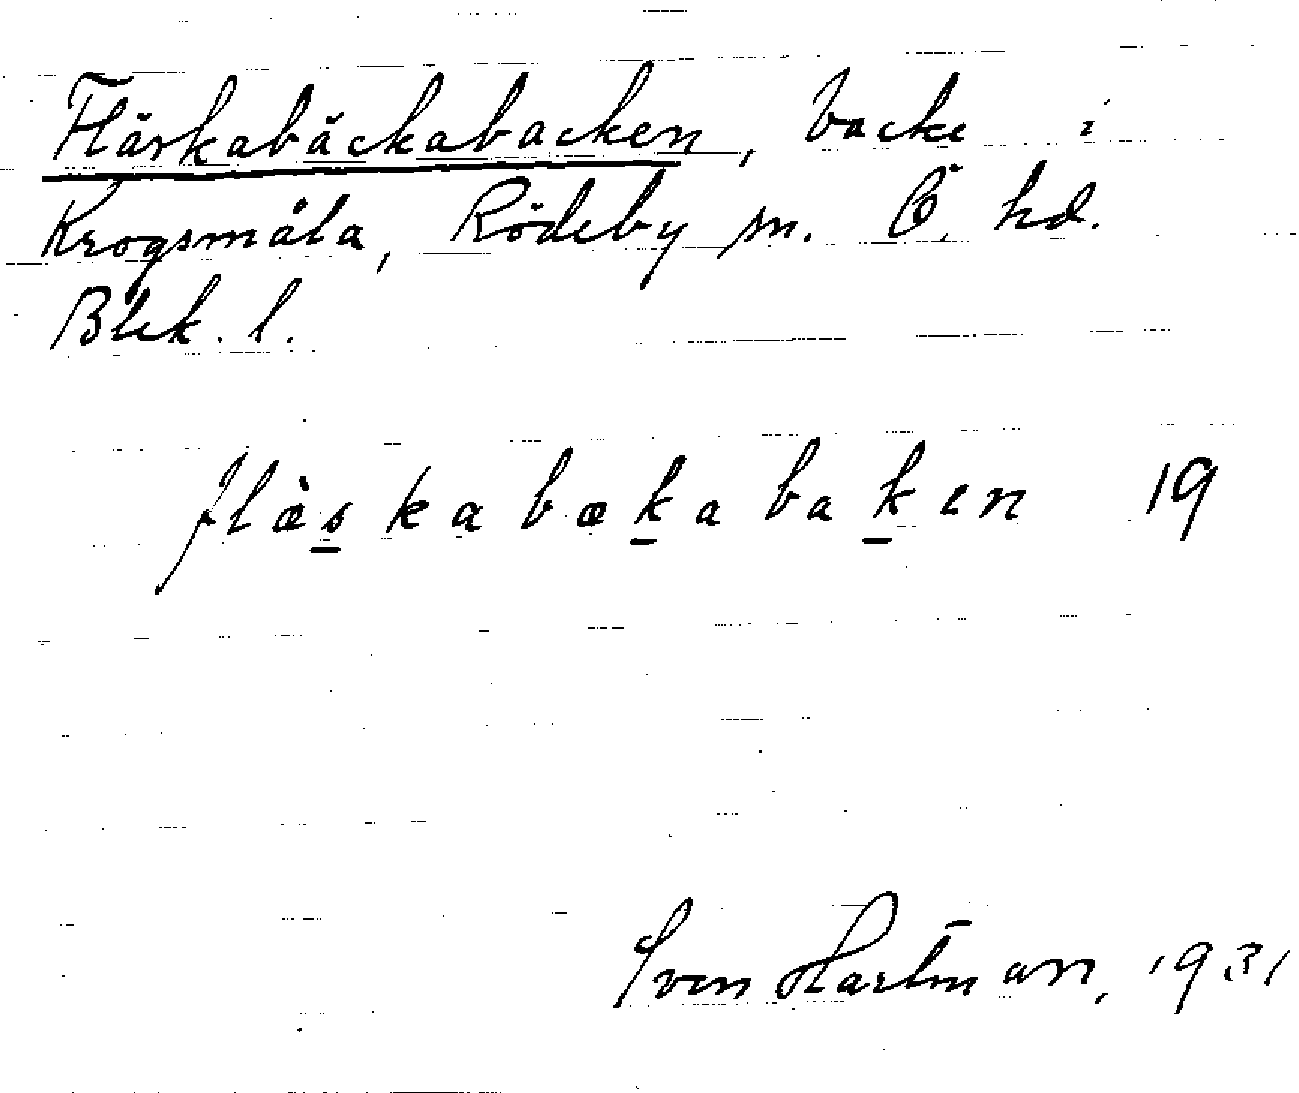 Fläskabäckabacken, backe i
Krogsmåla, Rödeby sn. Ö. hd.
Blek. l.
flæ̀s̲kabæk̲abak̲en 19
Sven Hartman, 1931